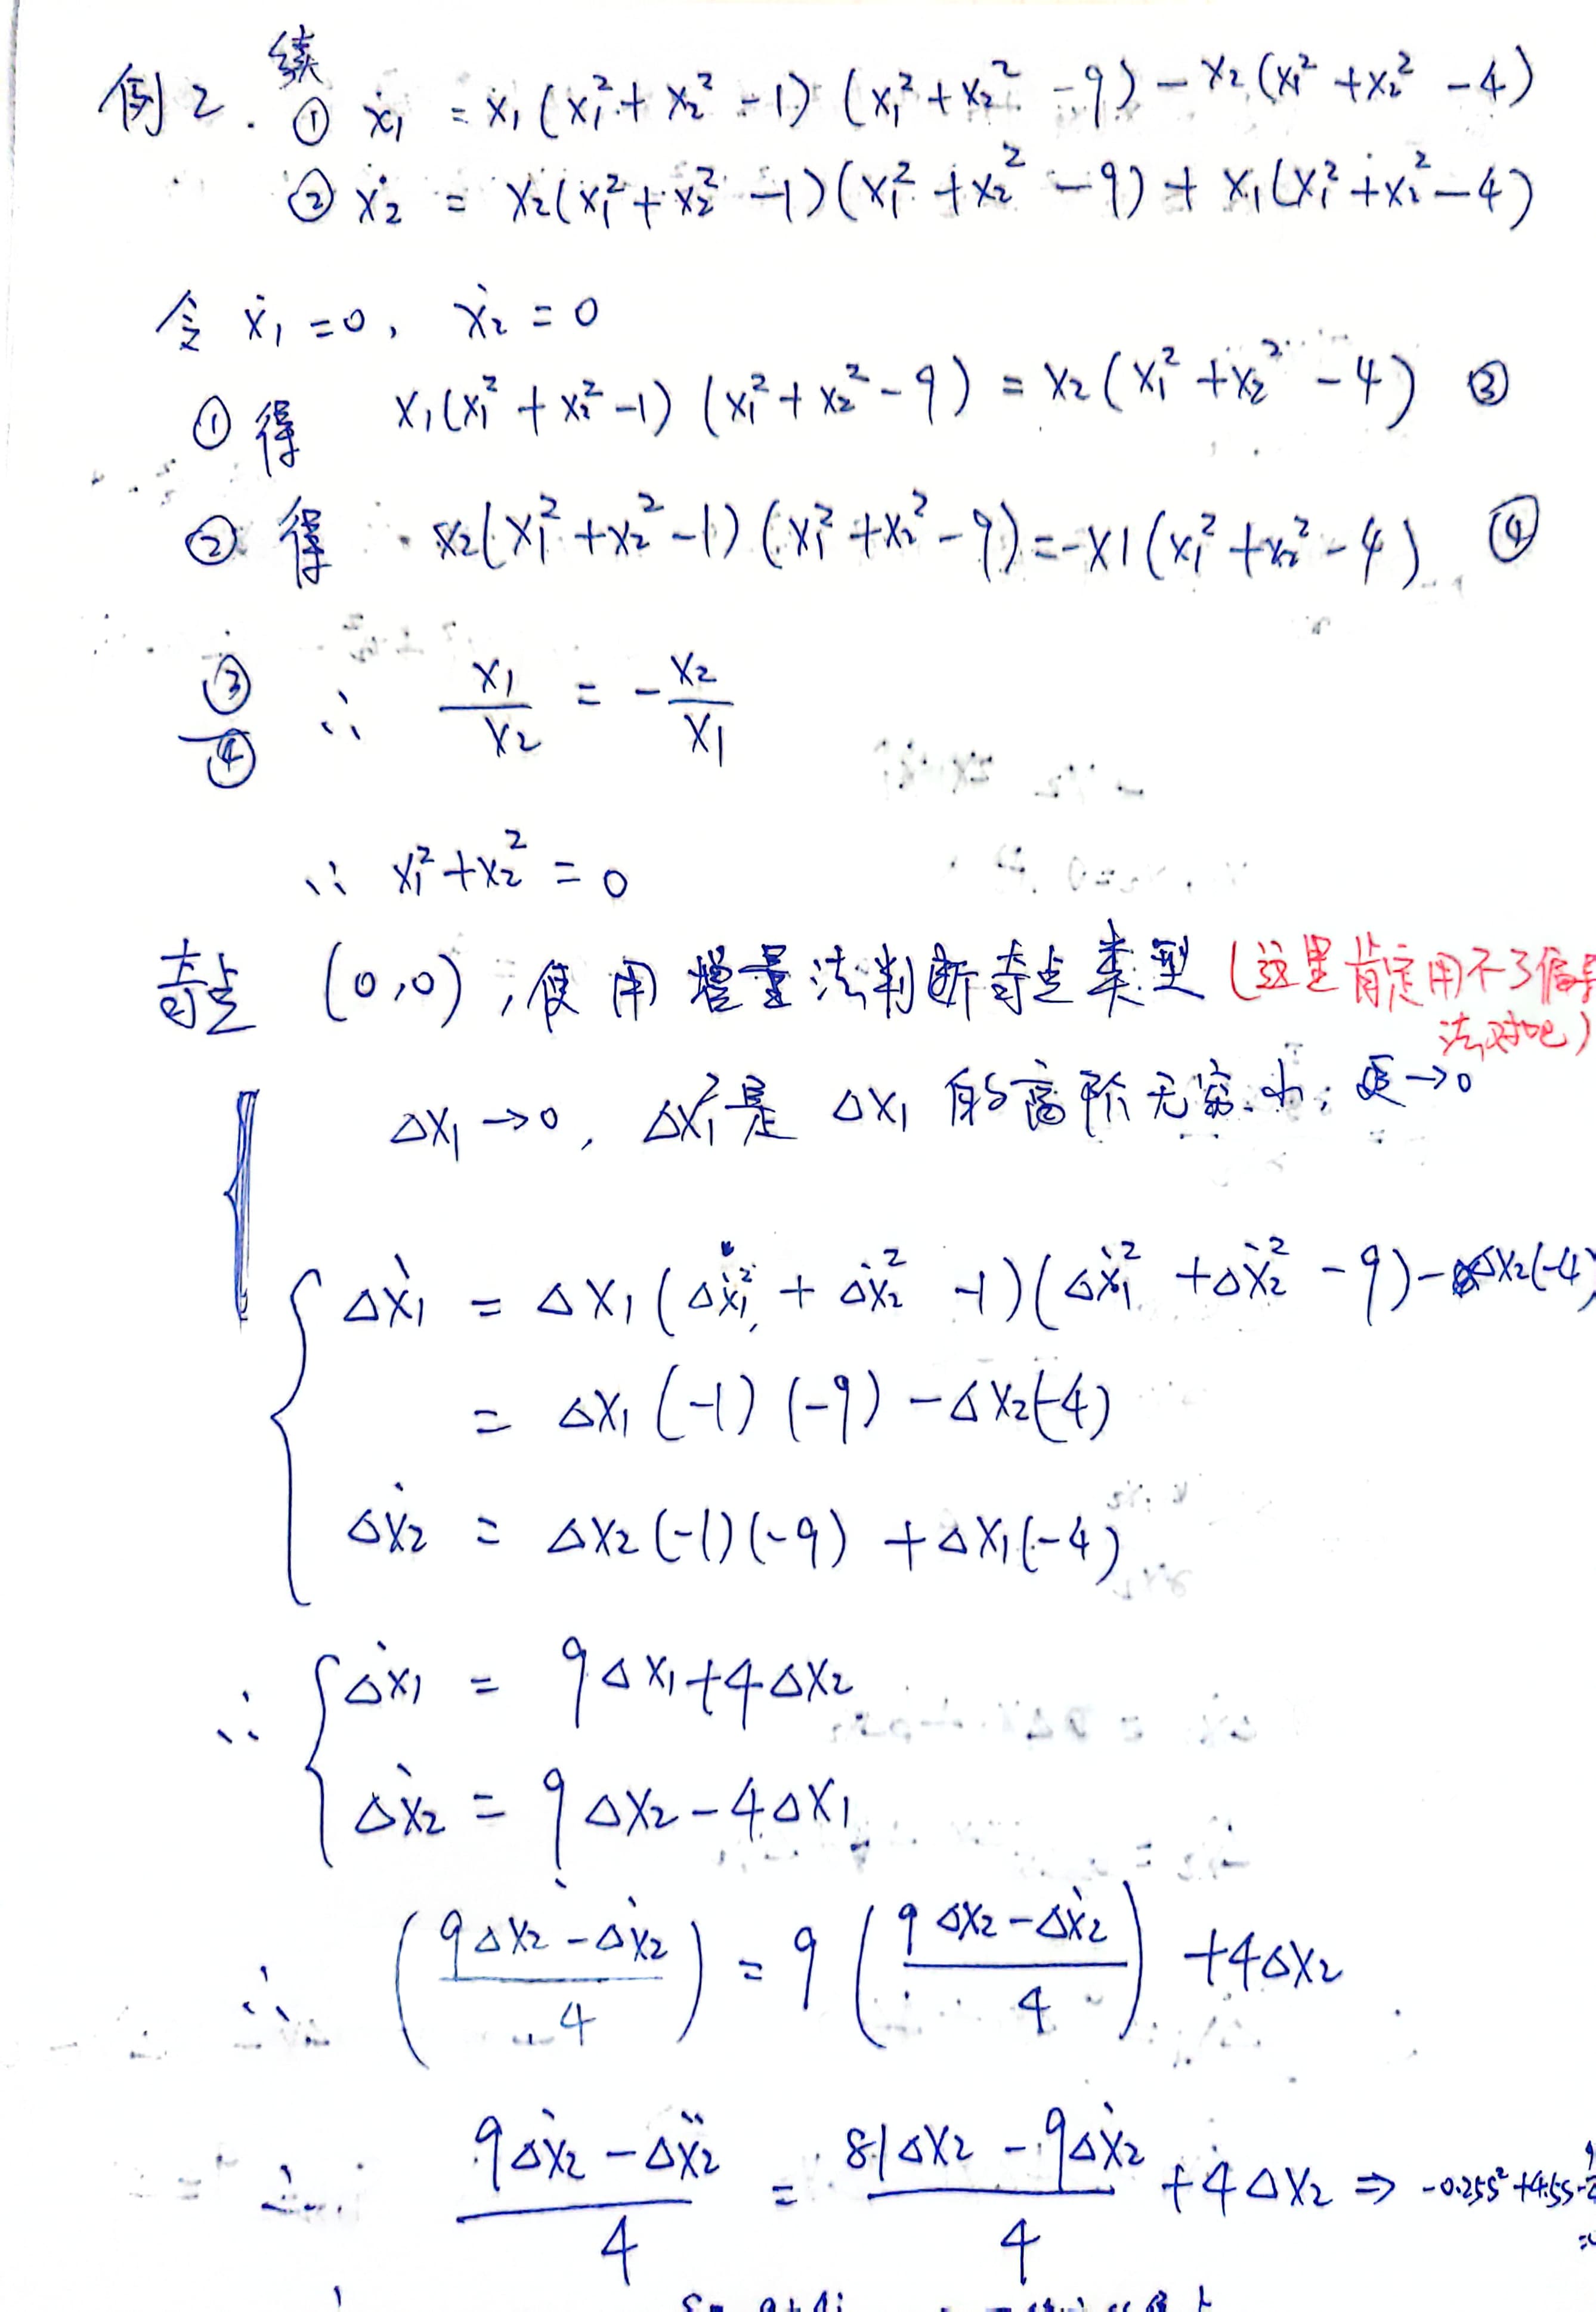 续
例2. ① ẋ₁ = x₁(x₁²+x₂²-1)(x₁²+x₂²-9)-x₂(x₁²+x₂²-4)
② ẋ₂ = x₂(x₁²+x₂²-1)(x₁²+x₂²-9)+x₁(x₁²+x₂²-4)
令 ẋ₁=0, ẋ₂=0
①得 x₁(x₁²+x₂²-1)(x₁²+x₂²-9)=x₂(x₁²+x₂²-4) ③
②得 x₂(x₁²+x₂²-1)(x₁²+x₂²-9)=-x1(x₁²+x₂²-4) ④
③/④ ∴ x₁/x₂ = -x₂/x₁
∴ x₁²+x₂²=0
奇点 (0,0),使用增量法判断奇点类型(这里肯定用不了偏导
法对吧)
Δx₁→0, Δx₁²是Δx₁的高阶无穷小,更→0
Δẋ₁ = Δx₁(Δẋ₁²+Δẋ₂²-1)(Δẋ₁²+Δẋ₂²-9)-Δx₂(-4)
= Δx₁(-1)(-9)-Δx₂(-4)
Δẋ₂ = Δx₂(-1)(-9)+Δx₁(-4)
∴ { Δẋ₁ = 9Δx₁+4Δx₂
Δẋ₂ = 9Δx₂-4Δx₁
∴ ((9Δx₂-Δẋ₂)/4)˙ = 9((9Δx₂-Δẋ₂)/4)+4Δx₂
∴ (9Δẋ₂-Δẍ₂)/4 = (81Δx₂-9Δẋ₂)/4+4Δx₂ ⇒ -0.25s²+4.5s-